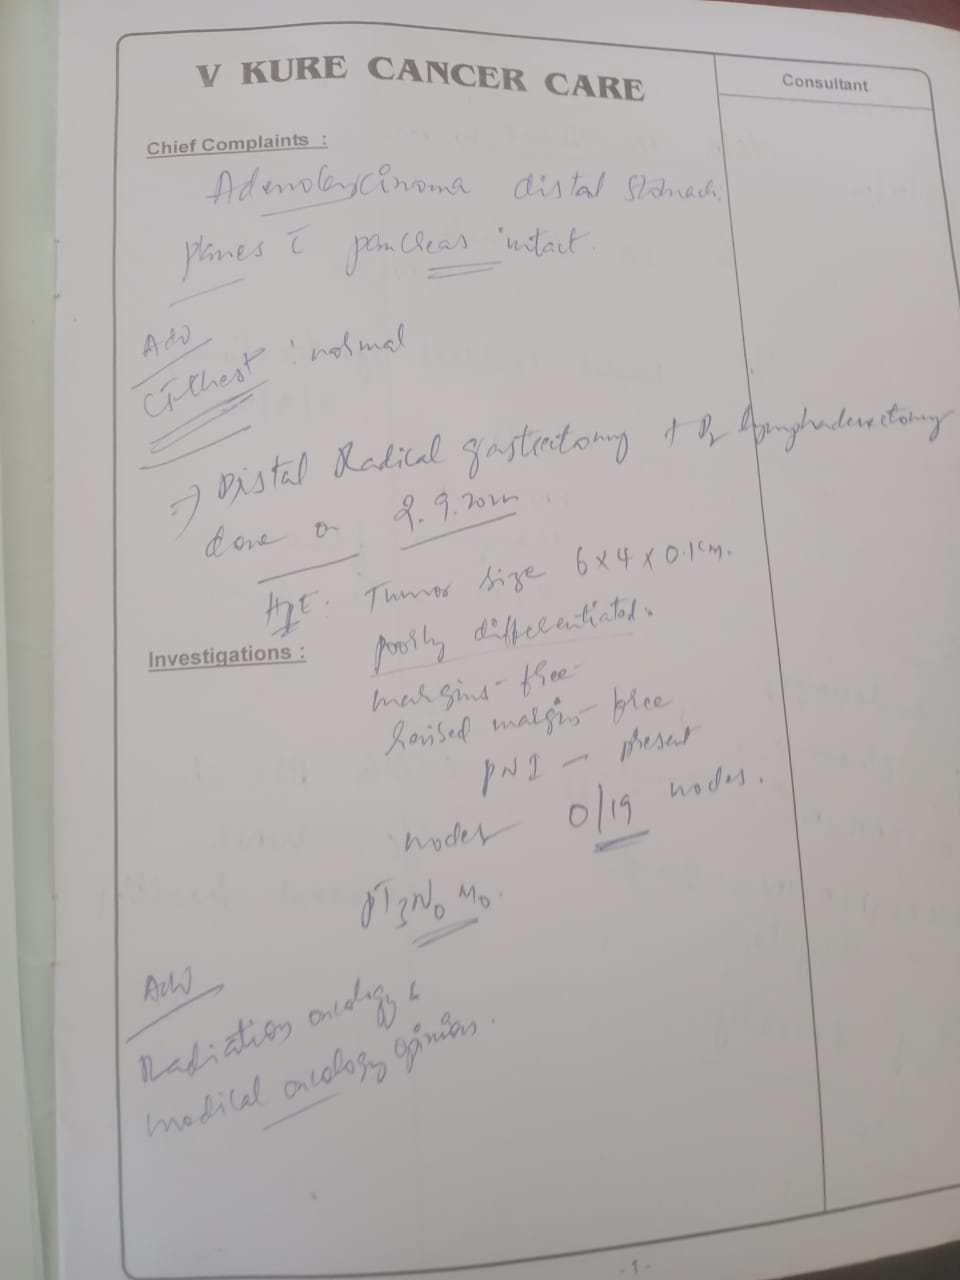 V KURE CANCER CARE
Consultant
Chief Complaints :
Adenocarcinoma distal stomach.
planes c̄ pancreas intact.
Adv
CT-Chest : normal
=> Distal Radical gastrectomy + D2 lymphadenectomy
done on 2.9.
HPE: Tumor size 6x4x0.1cm.
Investigations :
poorly differentiated.
margins - free
Revised margin - free
PNI - present
nodes 0/19 nodes.
pT3N0M0.
Adv
Radiation oncology &
medical oncology opinion.
-1-